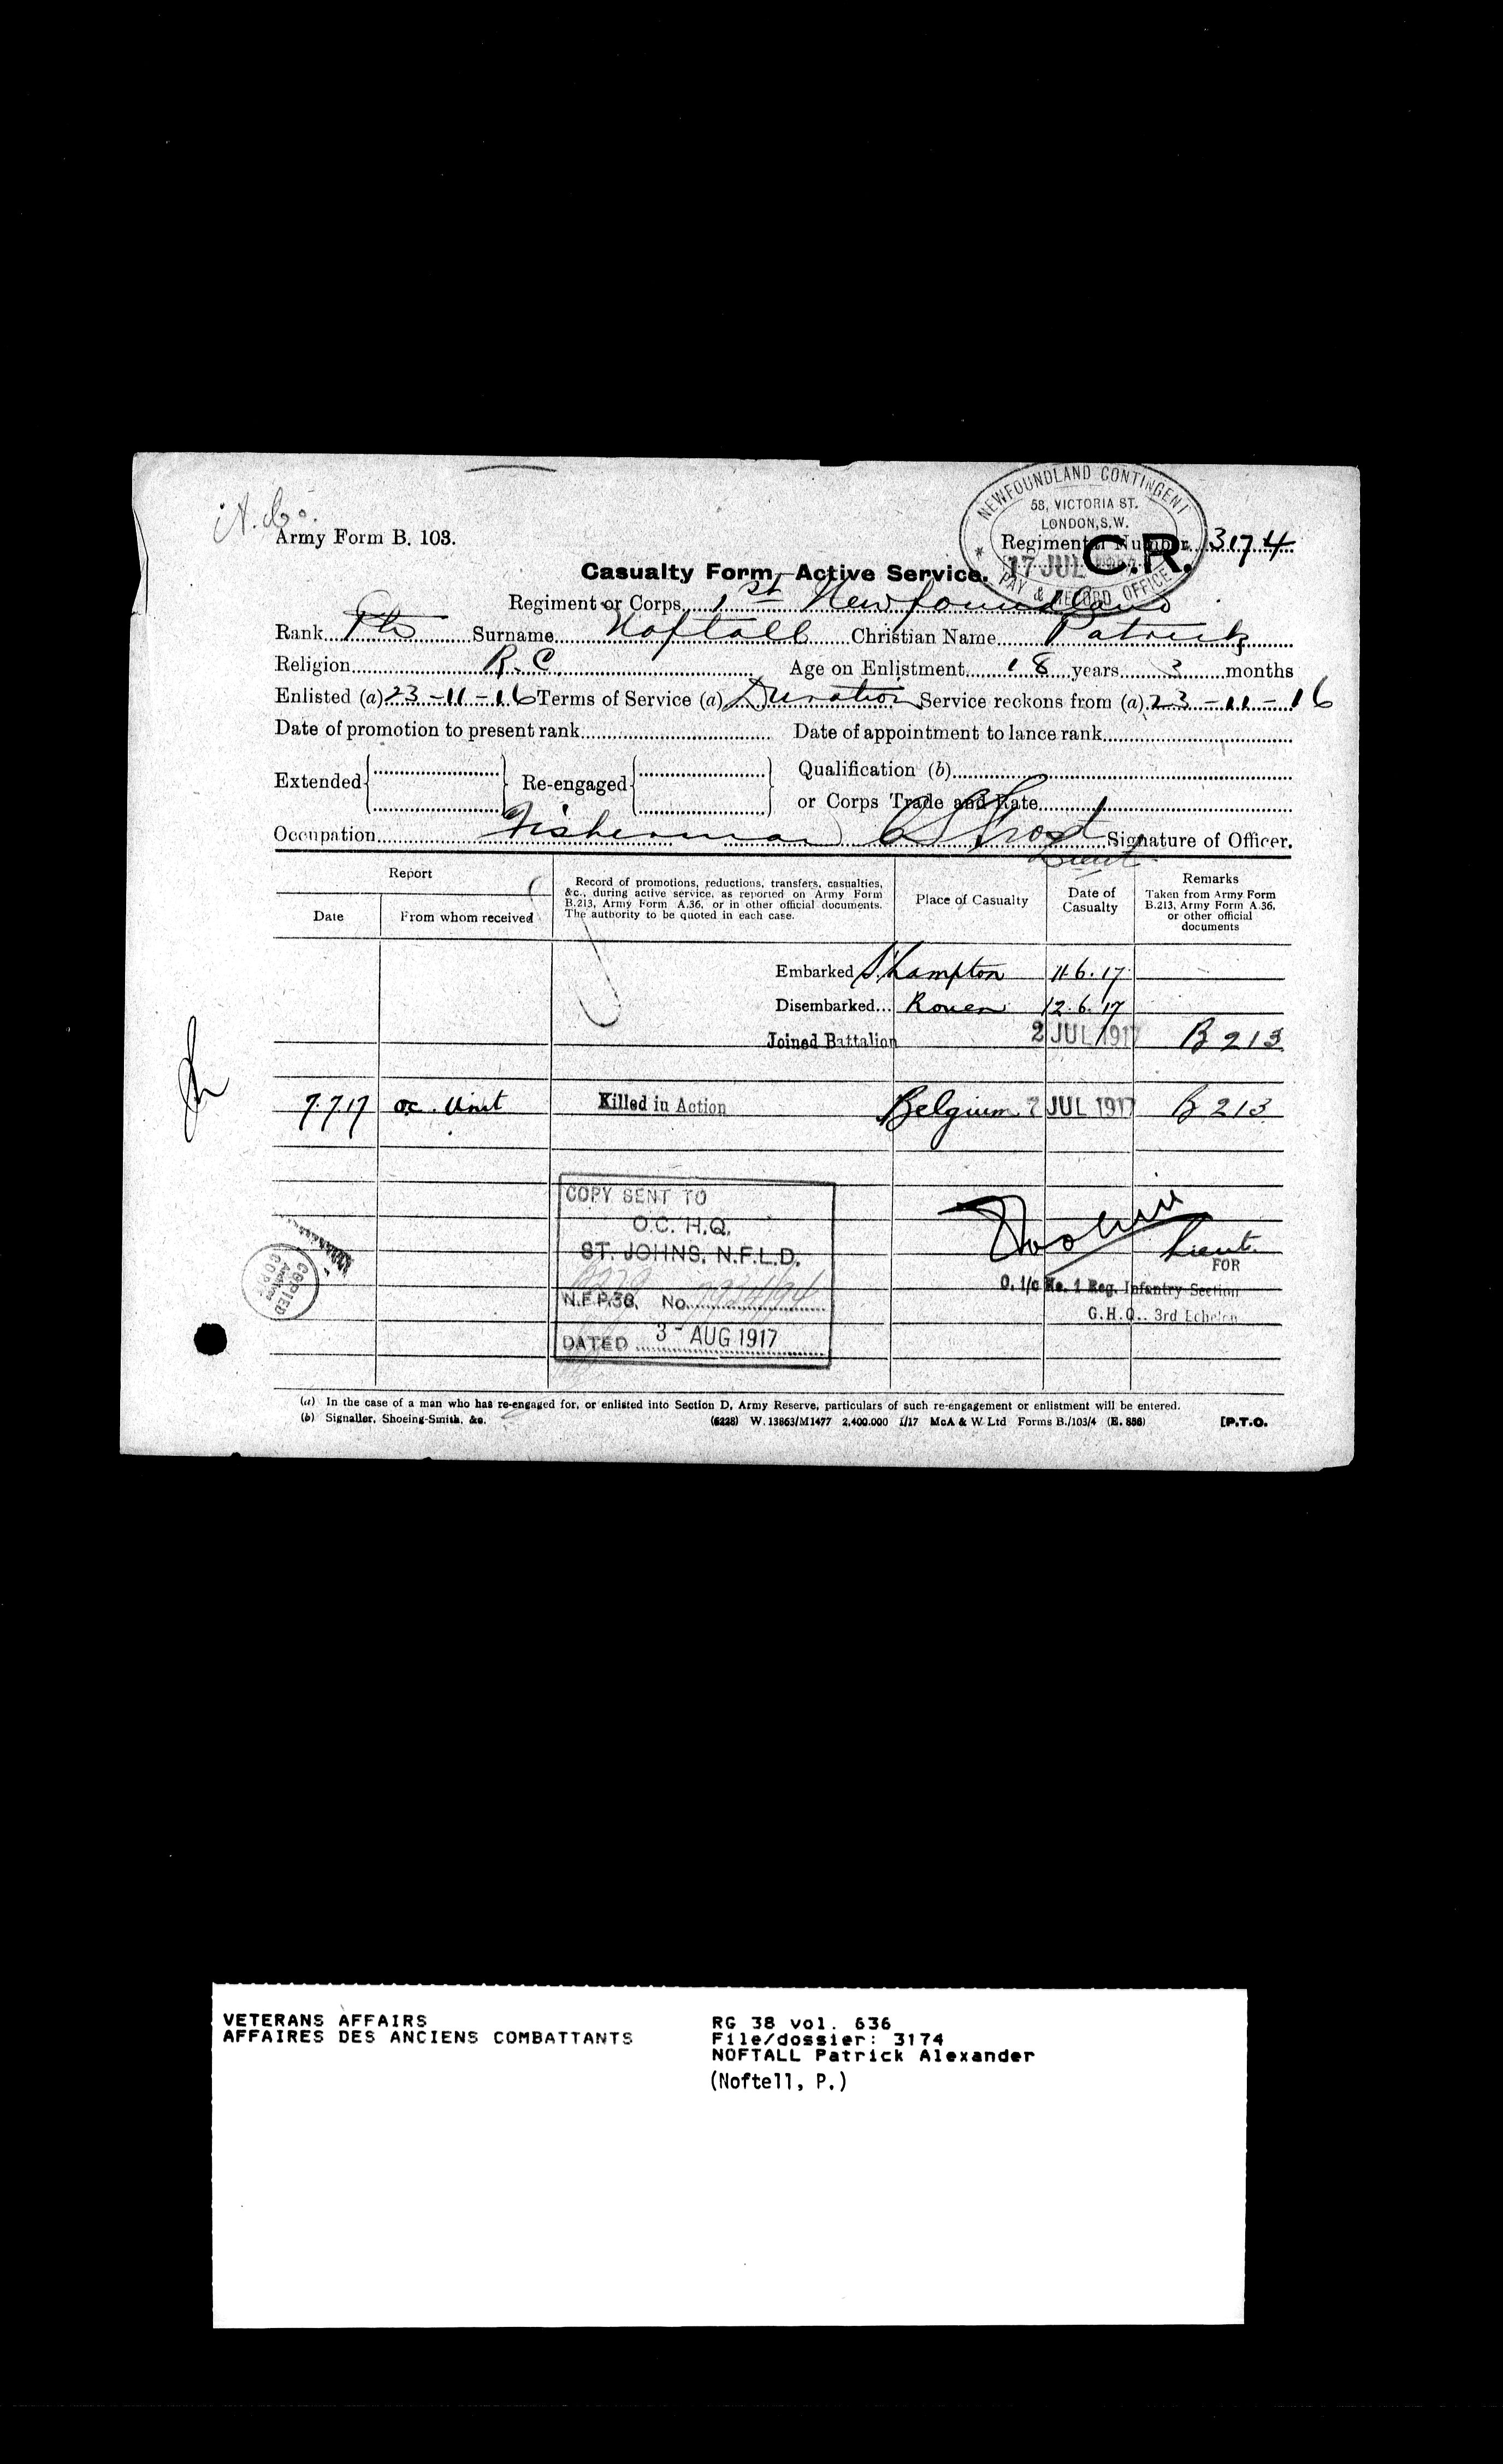 NEWFOUNDLAND CONTINGENT
58, VICTORIA ST.
LONDON, S.W.
17 JUL
PAY & RECORD OFFICE
C.R.
Army Form B. 103.
Regimental Number 3174
Casualty Form—Active Service.
Regiment or Corps 1st Newfoundland
Rank Pte Surname Noftall Christian Name Patrick
Religion R.C. Age on Enlistment 18 years 3 months
Enlisted (a) 23-11-16 Terms of Service (a) Duration Service reckons from (a) 23-11-16
Date of promotion to present rank Date of appointment to lance rank
Extended Re-engaged Qualification (b)
or Corps Trade and Rate
Occupation Fisherman Signature of Officer.
Lieut
Report
Date From whom received
Record of promotions, reductions, transfers, casualties, &c., during active service, as reported on Army Form B.213, Army Form A.36, or in other official documents. The authority to be quoted in each case.
Place of Casualty
Date of Casualty
Remarks
Taken from Army Form B.213, Army Form A.36, or other official documents
Embarked S'hampton 11.6.17
Disembarked... Rouen 12.6.17
Joined Battalion 2 JUL 1917 B 213
7.7.17 O.C. Unit Killed in Action Belgium 7 JUL 1917 B 213
COPY SENT TO
O.C. H.Q.
ST. JOHNS, N.F.L.D.
N.F.P.38. No.
DATED 3 - AUG 1917
Lieut.
FOR
O. i/c No. 1 Reg. Infantry Section
G.H.Q.. 3rd Echelon
COPIED
(a) In the case of a man who has re-engaged for, or enlisted into Section D, Army Reserve, particulars of such re-engagement or enlistment will be entered.
(b) Signaller, Shoeing-Smith, &c. (6228) W. 13863/M1477 2,400,000 1/17 McA & W Ltd Forms B./103/4 (E. 886) [P.T.O.
VETERANS AFFAIRS
AFFAIRES DES ANCIENS COMBATTANTS
RG 38 vol. 636
File/dossier: 3174
NOFTALL Patrick Alexander
(Noftell, P.)